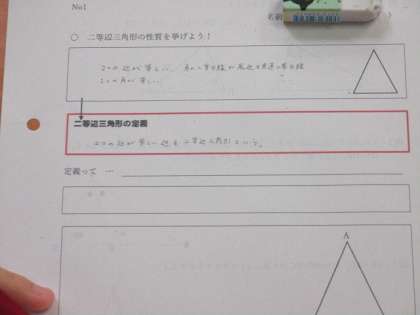 No1
名前
○ 二等辺三角形の性質を挙げよう！
2つの辺が等しい。角の二等分線が底辺の垂直二等分線
2つの角が等しい
二等辺三角形の定義
2つの辺が等しい 二等辺三角形という。
定義って …
A